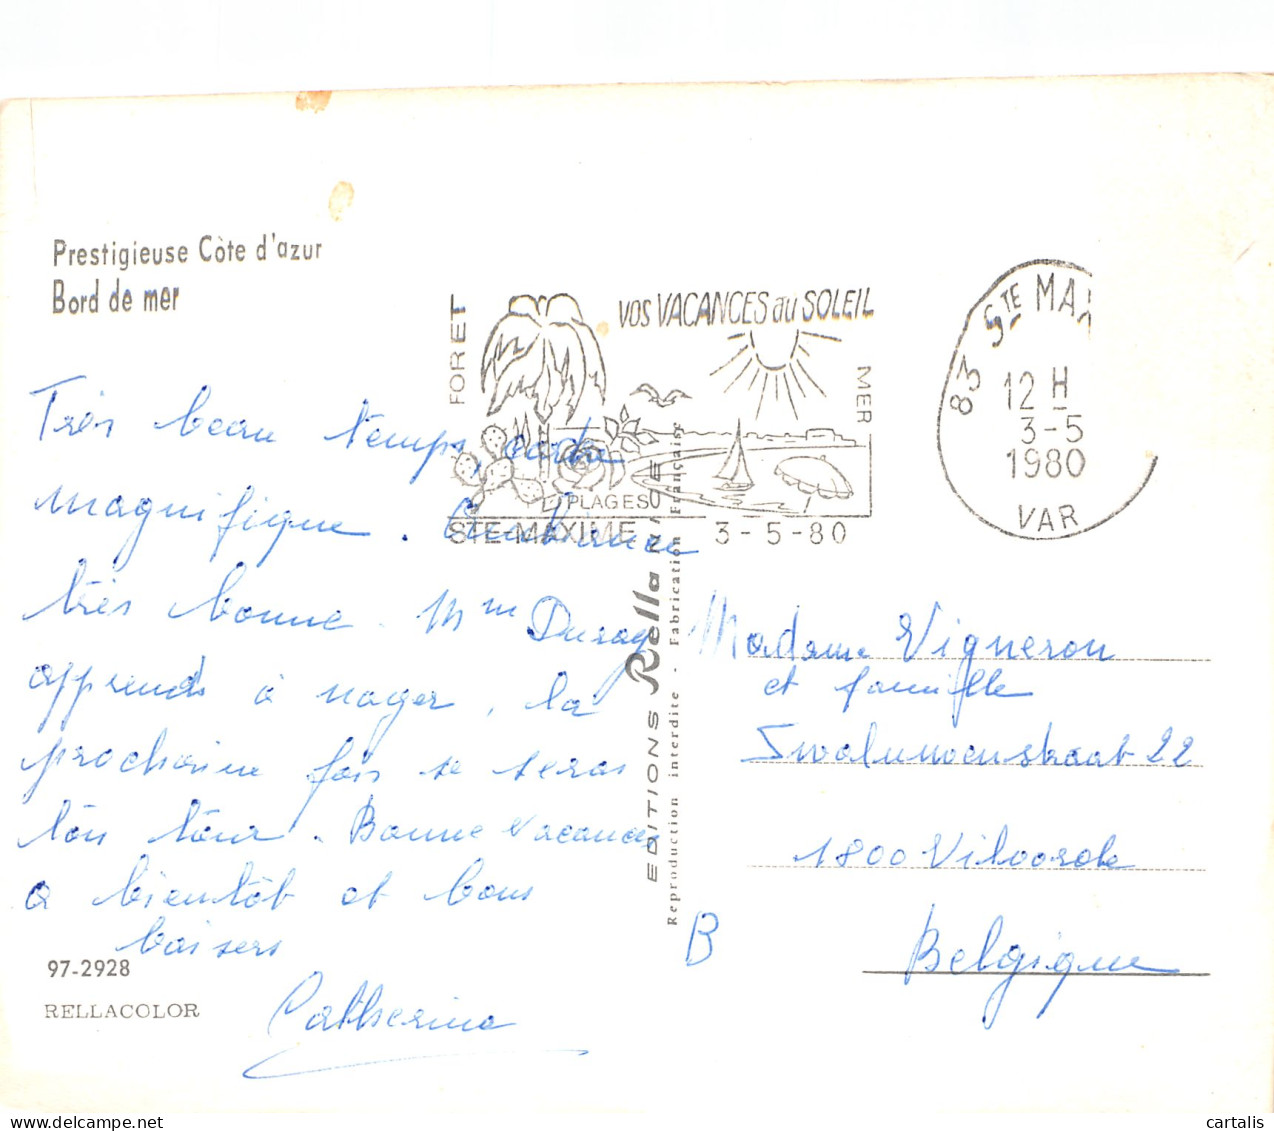 Prestigieuse Côte d'azur
Bord de mer
FORET
VOS VACANCES au SOLEIL
MER
PLAGES
STE-MAXIME 3-5-80
83 STE MAX
12 H
3-5
1980
VAR
Très beau temps,
magnifique. Ambiance
très bonne. Mme Duray
apprends à nager, la
prochaine fois se seras
ton tour. Bonne Vacances
a bientôt et bons
baisers
Catherine
97-2928
RELLACOLOR
EDITIONS Rella NICE
Reproduction interdite - Fabrication Française
Madame Vigneron
et famille
22
1800 Vilvorde
B Belgique
cartalis
www.delcampe.net